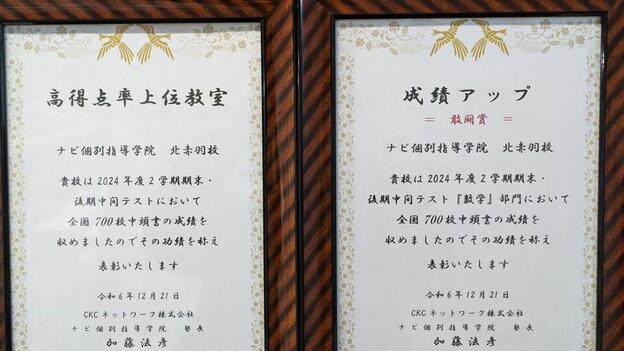 高得点率上位教室
ナビ個別指導学院 北赤羽校
貴校は2024年度2学期期末・
後期中間テストにおいて
全国700校中頭書の成績を
収めましたのでその功績を称え
表彰いたします
令和6年12月21日
CKCネットワーク株式会社
ナビ個別指導学院 塾長
加藤法彦
成績アップ
＝ 敢闘賞 ＝
ナビ個別指導学院 北赤羽校
貴校は2024年度2学期期末・
後期中間テスト『数学』部門において
全国700校中頭書の成績を
収めましたのでその功績を称え
表彰いたします
令和6年12月21日
CKCネットワーク株式会社
ナビ個別指導学院 塾長
加藤法彦